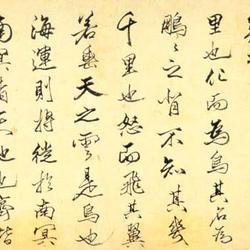 里也化而為鳥其名為
鵬〻之背不知其幾
千里也怒而飛其翼
若垂天之雲是鳥也
海運則將徙於南冥
南冥者天池也齊諧